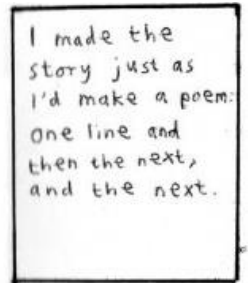 I made the
story just as
I'd make a poem:
one line and
then the next,
and the next.